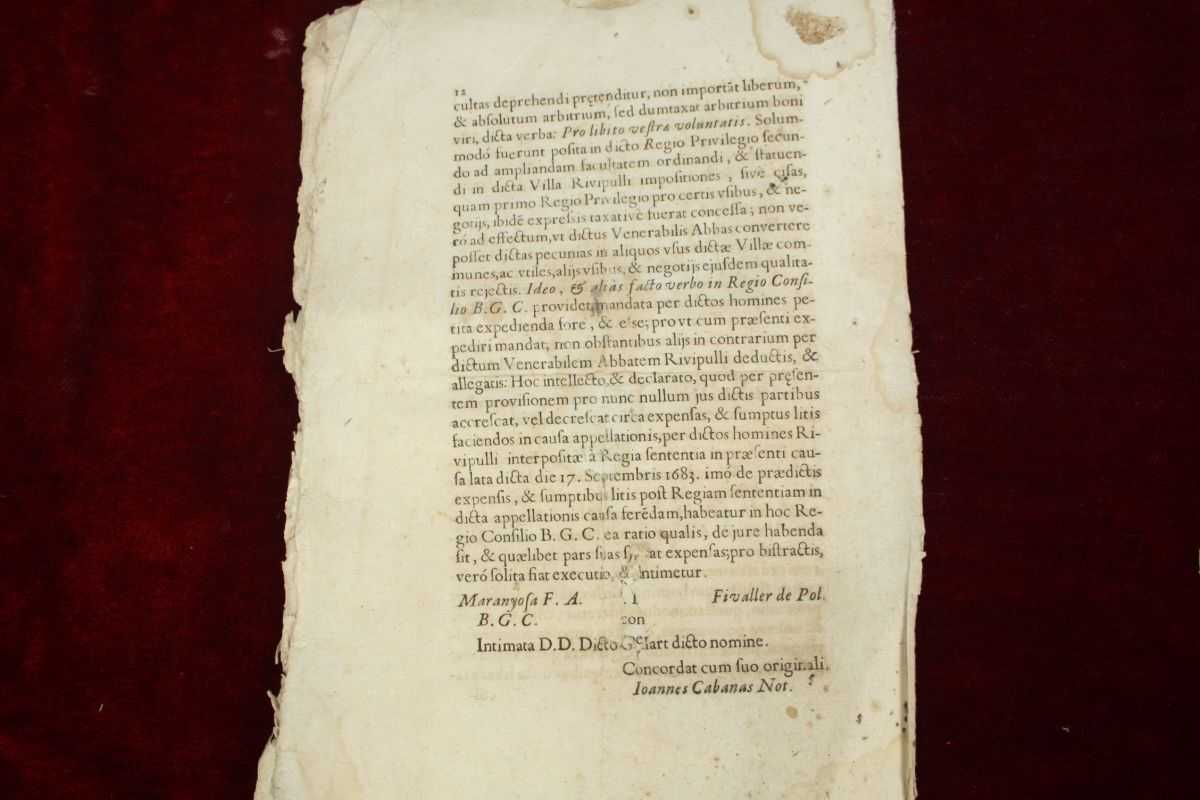 12
cultas deprehendi prętenditur, non importāt liberum,
& absolutum arbitrium, sed dumtaxat arbitrium boni
viri, dicta verba: Pro libito vestræ voluntatis. Solum-
modó fuerunt posita in dicto Regio Privilegio secun-
do ad ampliandam facultatem ordinandi, & statuen-
di in dicta Villa Rivipulli impositiones, sive cisas,
quam primo Regio Privilegio pro certis vsibus, & ne-
gotijs, ibidē expressis taxativé fuerat concessa; non ve-
ró ad effectum, vt dictus Venerabilis Abbas convertere
posset dictas pecunias in aliquos vsus dictæ Villæ com-
munes, ac vtiles, alijs vsibus, & negotijs ejusdem qualita-
tis rejectis. Ideo, & alias facto verbo in Regio Consi-
lio B. G. C. providet, mandata per dictos homines pe-
tita expedienda fore, & esse; pro vt cum præsenti ex-
pediri mandat, non obstantibus alijs in contrarium per
dictum Venerabilem Abbatem Rivipulli deductis, &
allegatis: Hoc intellecto, & declarato, quod per pręsen-
tem provisionem pro nunc nullum jus dictis partibus
accrescat, vel decrescat circa expensas, & sumptus litis
faciendos in causa appellationis, per dictos homines Ri-
vipulli interpositæ à Regia sententia in præsenti cau-
sa lata dicta die 17. Septembris 1683. imó de prædictis
expensis, & sumptibus litis post Regiam sententiam in
dicta appellationis causa ferēdam, habeatur in hoc Re-
gio Consilio B. G. C. ea ratio qualis, de jure habenda
sit, & quælibet pars suas at expensas; pro bistractis,
veró solita fiat executio, & intimetur.
Maranyosa F. A. Fivaller de Pol.
B. G. C. con
Intimata D. D. Dicto dicto nomine.
Concordat cum suo originali.
Ioannes Cabanas Not.